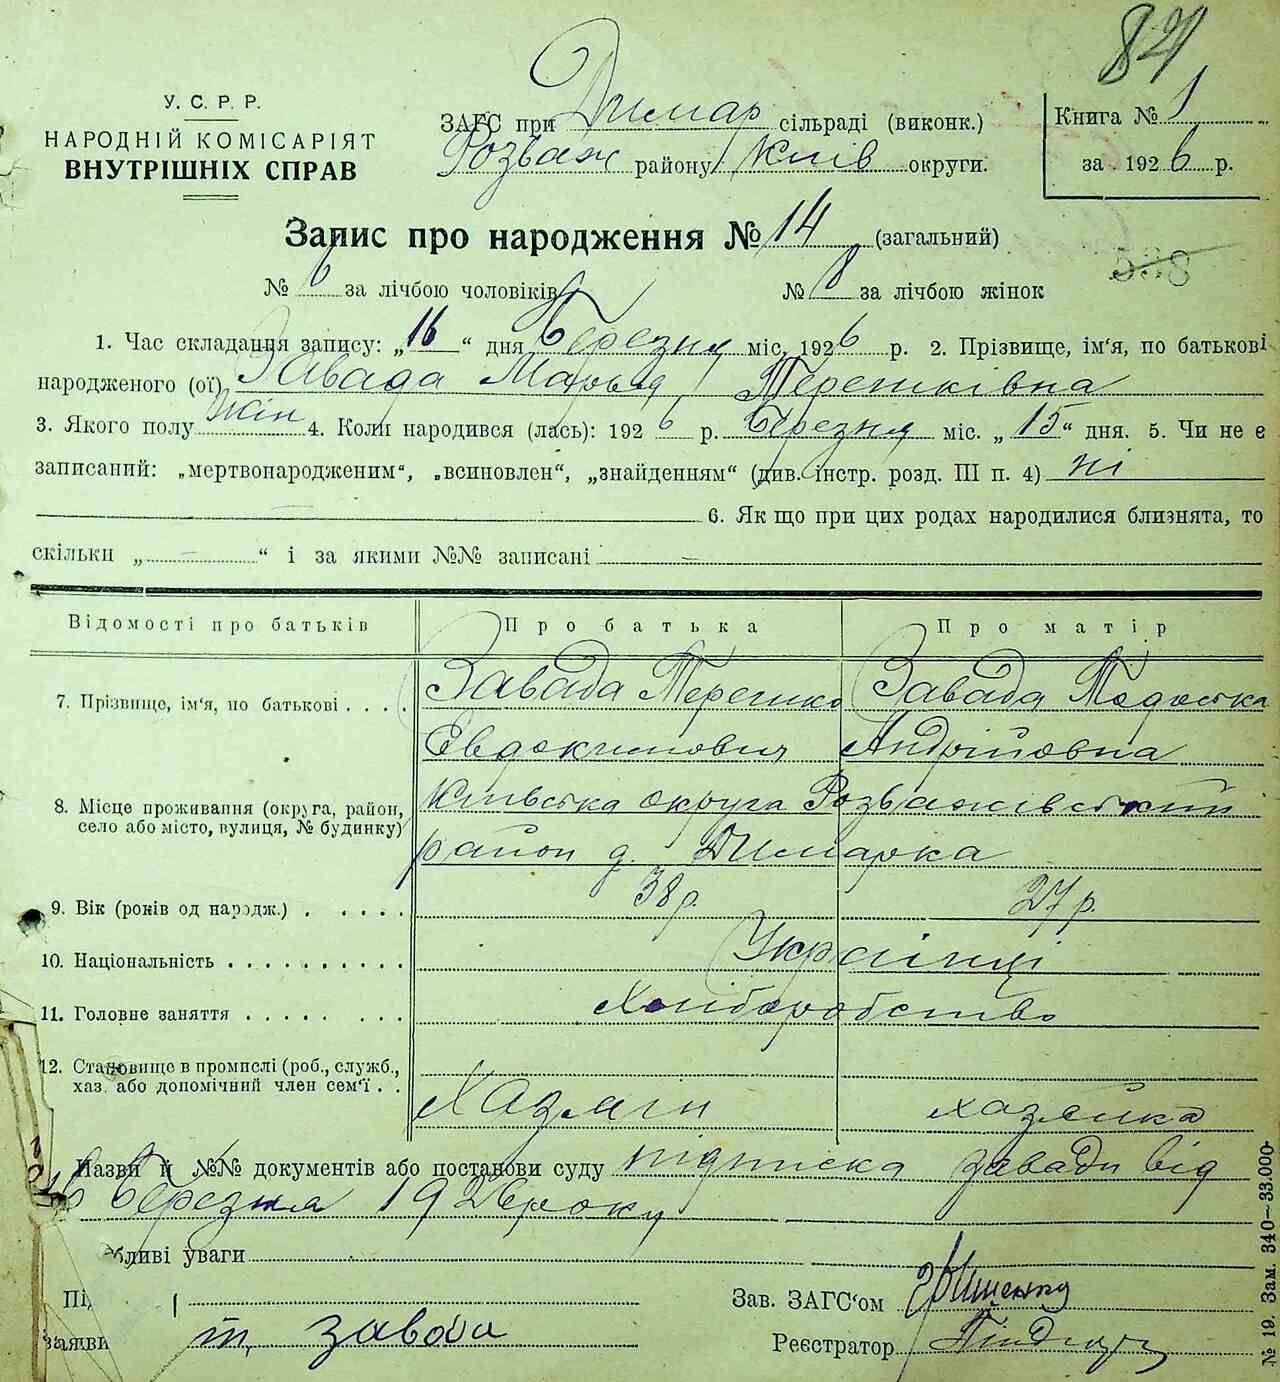 821
У. С. Р. Р.
НАРОДНІЙ КОМІСАРІЯТ
ВНУТРІШНІХ СПРАВ
ЗАГС при Димар сільраді (виконк.)
Розваж району Київ округи.
Книга № 1
за 1926 р.
Запис про народження № 14 (загальний)
588
№ 6 за лічбою чоловіків № 8 за лічбою жінок
1. Час складання запису: „16“ дня Березня міс. 1926 р. 2. Прізвище, ім'я, по батькові
народженого (ої) Завада Марья Терешківна
3. Якого полу жін 4. Коли народився (лась): 1926 р. Березня міс. „15“ дня. 5. Чи не є
записаний: „мертвонародженим“, „всиновлен“, „знайденням“ (див. інстр. розд. III п. 4) ні
6. Як що при цих родах народилися близнята, то
скільки „ — “ і за якими №№ записані —
Відомості про батьків Про батька Про матір
7. Прізвище, ім'я, по батькові Завада Терешко Завада Тодоська
Євдокимович Андрійовна
8. Місце проживання (округа, район, село або місто, вулиця, № будинку) Київська округа Розважівський
район д. Димарка
9. Вік (років од народж.) 38 р. 27 р.
10. Національність Українці
11. Головне заняття Хліборобство
12. Становище в промислі (роб., служб.,
хаз. або допомічний член сем'ї Хазяїн хазяйка
Назви й №№ документів або постанови суду підписка завади від
16 березня 1926 року
бливі уваги
Під
Зав. ЗАГС'ом
заяви т. завада Реєстратор
№ 19. Зам. 340–33.000